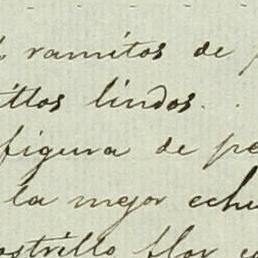 ramitos de
illos lindos.
figura de pe
la mejor echu
ostrillo flor